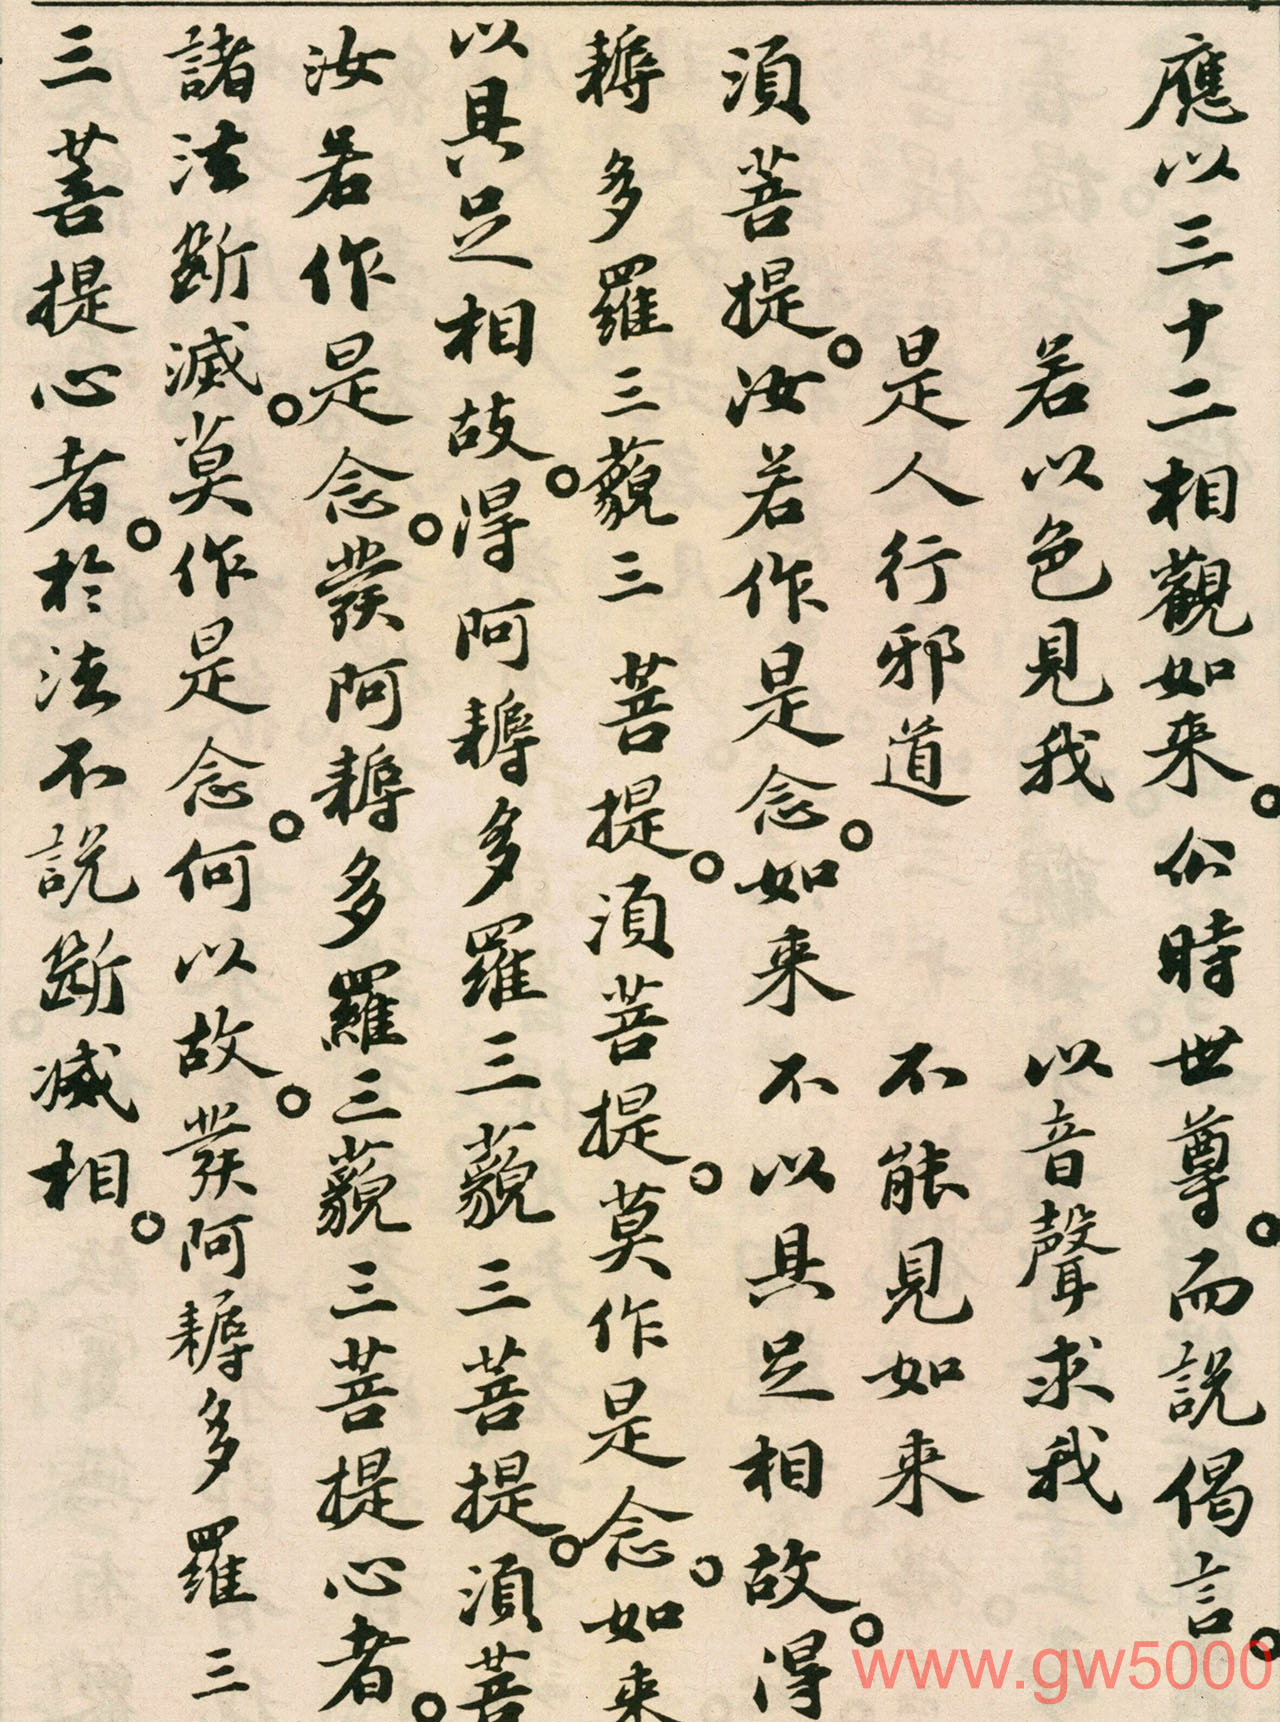 應以三十二相觀如来。尒時世尊。而說偈言。
若以色見我 以音聲求我
是人行邪道 不能見如来
須菩提。汝若作是念。如来不以具足相故。得
耨多羅三藐三菩提。須菩提。莫作是念。如来
以具足相故。得阿耨多羅三藐三菩提。須菩
汝若作是念。發阿耨多羅三藐三菩提心者。
諸法斷滅。莫作是念。何以故。發阿耨多羅三
三菩提心者。於法不說斷滅相。
www.gw5000